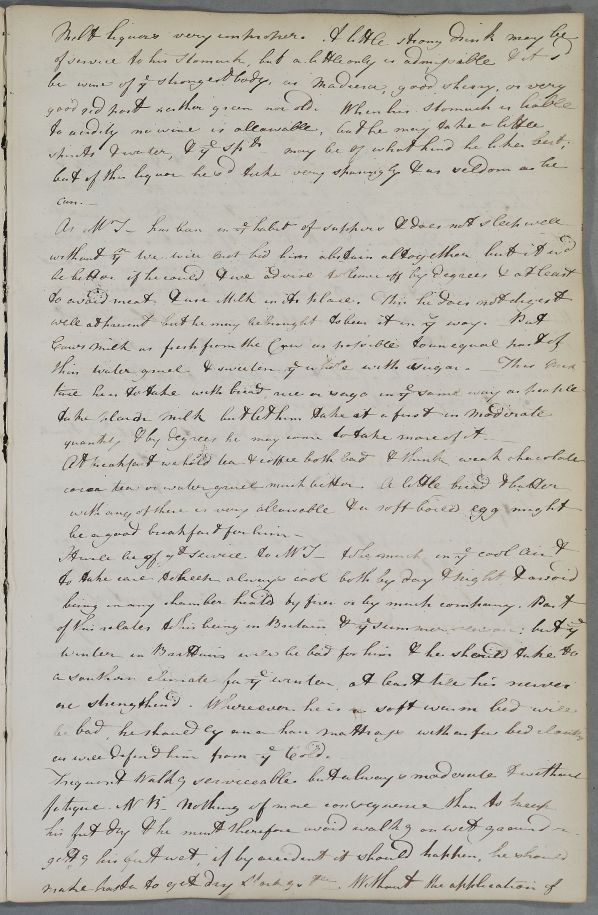 Malt liquors very improper. A little strong drink may be
of service to his stomach, but a little only is admissable & it s'd
be wine of y strongest body, as Madeira, good sherry, or very
good red port neither green nor old. When his stomach is liable
to acidity no wine is allowable, but he may take a little
spirits & water, & y sp.ts may be of what kind he likes best;
but of this liquor he s'd take very sparingly & as seldom as he
can. —
As Mr T— has been in y habit of suppers & does not sleep well
without ym we will not bid him abstain altogether but it w'd
be better if he could & we advise to leave off by degrees & at least
to avoid meat & use Milk in its place. This he does not digest
well at present but he may be brought to bear it in y way. Put
Cows milk as fresh from the Cow as possible to an equal part of
thin water gruel & sweeten y whole with sugar. — This
he is to take with bread, rice or sago in y same way as people
take plain milk but let him take at first in moderate
quantity & by degrees he may come to take more of it. —
At breakfast we hold tea & coffee both bad & think weak chocolate
cocoa tea or water gruel much better. A little bread & butter
with any of these is very allowable & a soft boiled egg might
be a good breakfast for him —
It will be of gt service to Mr T— to be much in y cool air &
to take care to keep always cool both by day & night, & avoid
being in any chamber heated by fires or by much company. Part
of this relates to his being in Britain & y summer season; but y
winter in Brittain will be bad for him & he should take to
a southern climate for y winter, at least till his nerves
are strengthend. Wherever he is a soft warm bed will
be bad, he should ly on a hair mattrass with as few bed cloaths
as will defend him from y Cold.
Frequent walkg serviceable but always moderate & without
fatigue. N.B. Nothing of more consequence than to keep
his feet dry & he must therefore avoid walkg on wet ground or
gettg his feet wet, if by accident it should happen, he should
make haste to get dry Stockgs &. Without the application of